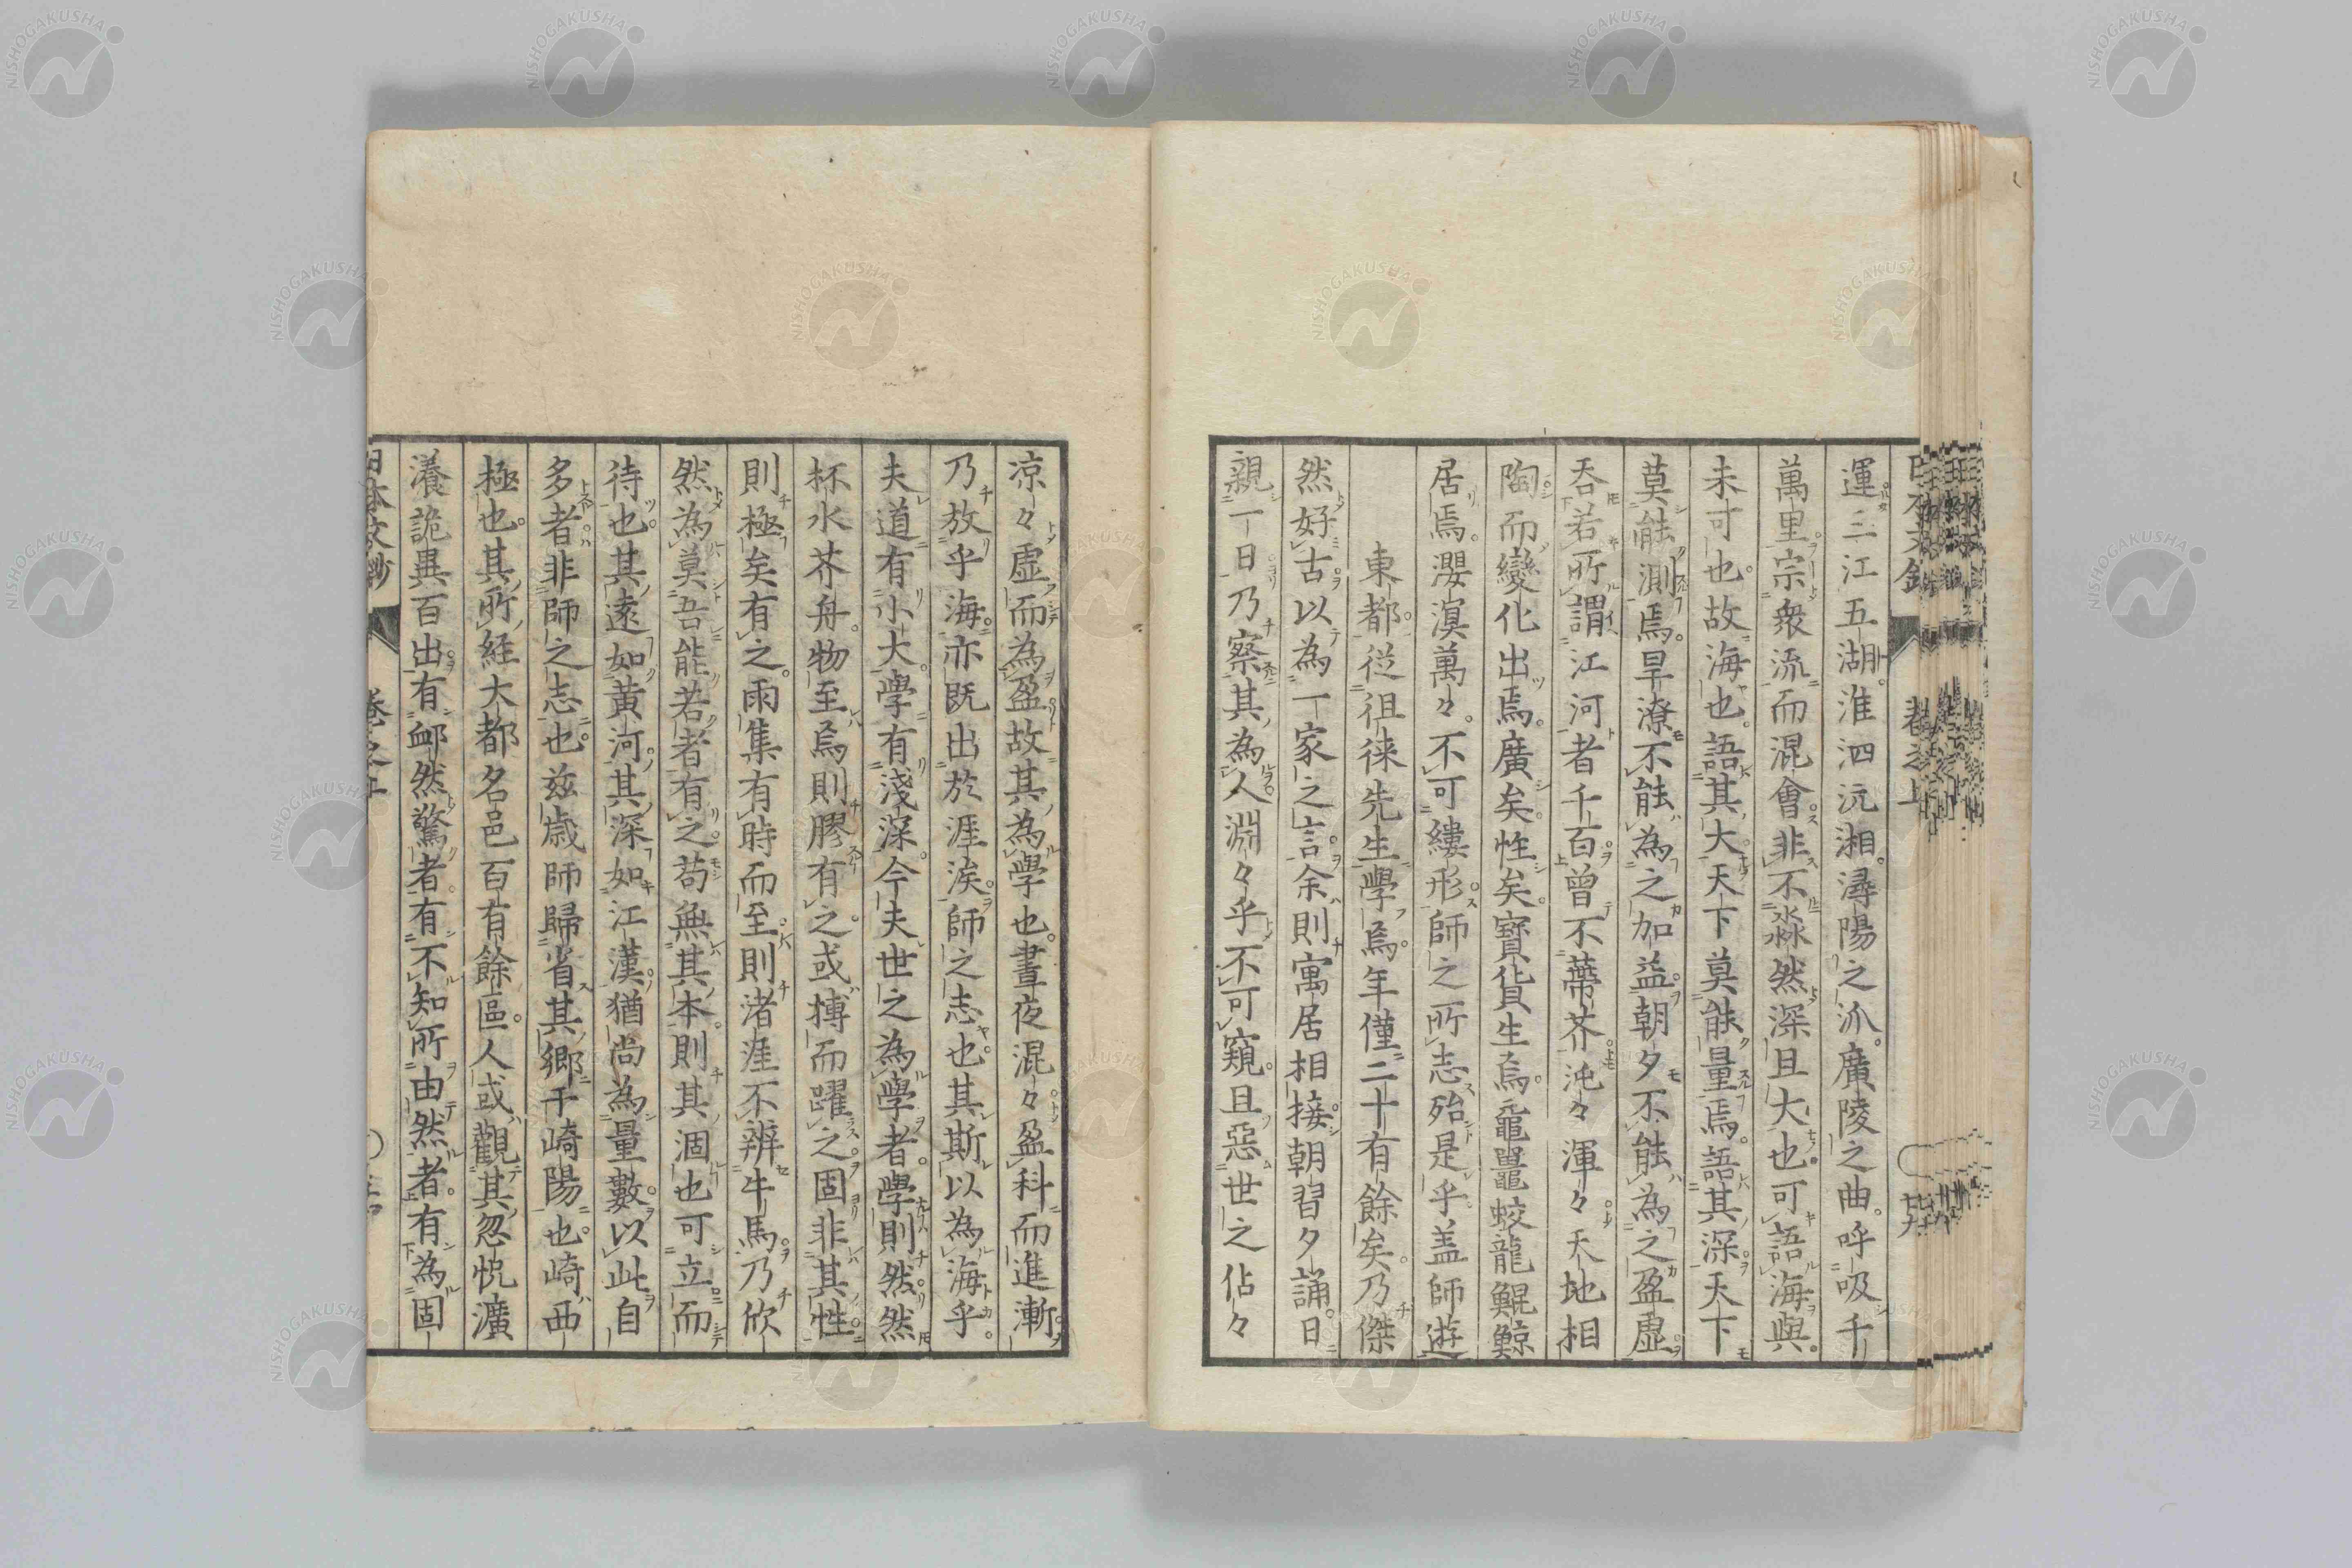 運三江五湖。淮泗沅湘。潯陽之派。廣陵之曲。呼吸千
萬里。宗衆流而混會。非不淼然深且大也。可語海與。
未可也。故海也。語其大。天下莫能量焉。語其深。天下
莫能測焉。旱潦不能為之加益。朝夕不能為之盈虛。
吞若所謂江河者千百。曾不蔕芥。沌々渾々。天地相
陶。而變化出焉。廣矣。性矣。寶貨生焉。黿鼉蛟龍鯤鯨
居焉。瀴溟萬々。不可縷形。師之所志。殆是乎。盖師遊
東都。從徂徠先生學焉。年僅二十有餘矣。乃傑
然好古。以為一家之言。余則寓居相接。朝習夕誦。日
親一日。乃察其為人。淵々乎不可窺。且惡世之佔々
凉々。虛而為盈。故其為學也。晝夜混々。盈科而進。漸
乃放乎海。亦既出於涯涘。師之志也。其斯以為海乎。
夫道有小大。學有淺深。今夫世之為學者。學則然。然
杯水芥舟。物至焉則膠有之。或摶而躍之。固非其性。
則極矣有之。雨集有時而至。則渚涯不辨牛馬。乃欣
然為莫吾能若者有之。苟無其本。則其涸也。可立而
待也。其遠如黃河。其深如江漢。猶尚為量數。以此自
多者。非師之志也。茲歳師歸省其鄉于崎陽也。崎西
極也。其所經大都名邑百有餘區。人或觀其忽怳瀇
瀁詭異百出。有䘏然驚者。有不知所由然者。有為固
日本文鈔
卷之上
NISHOGAKUSHA